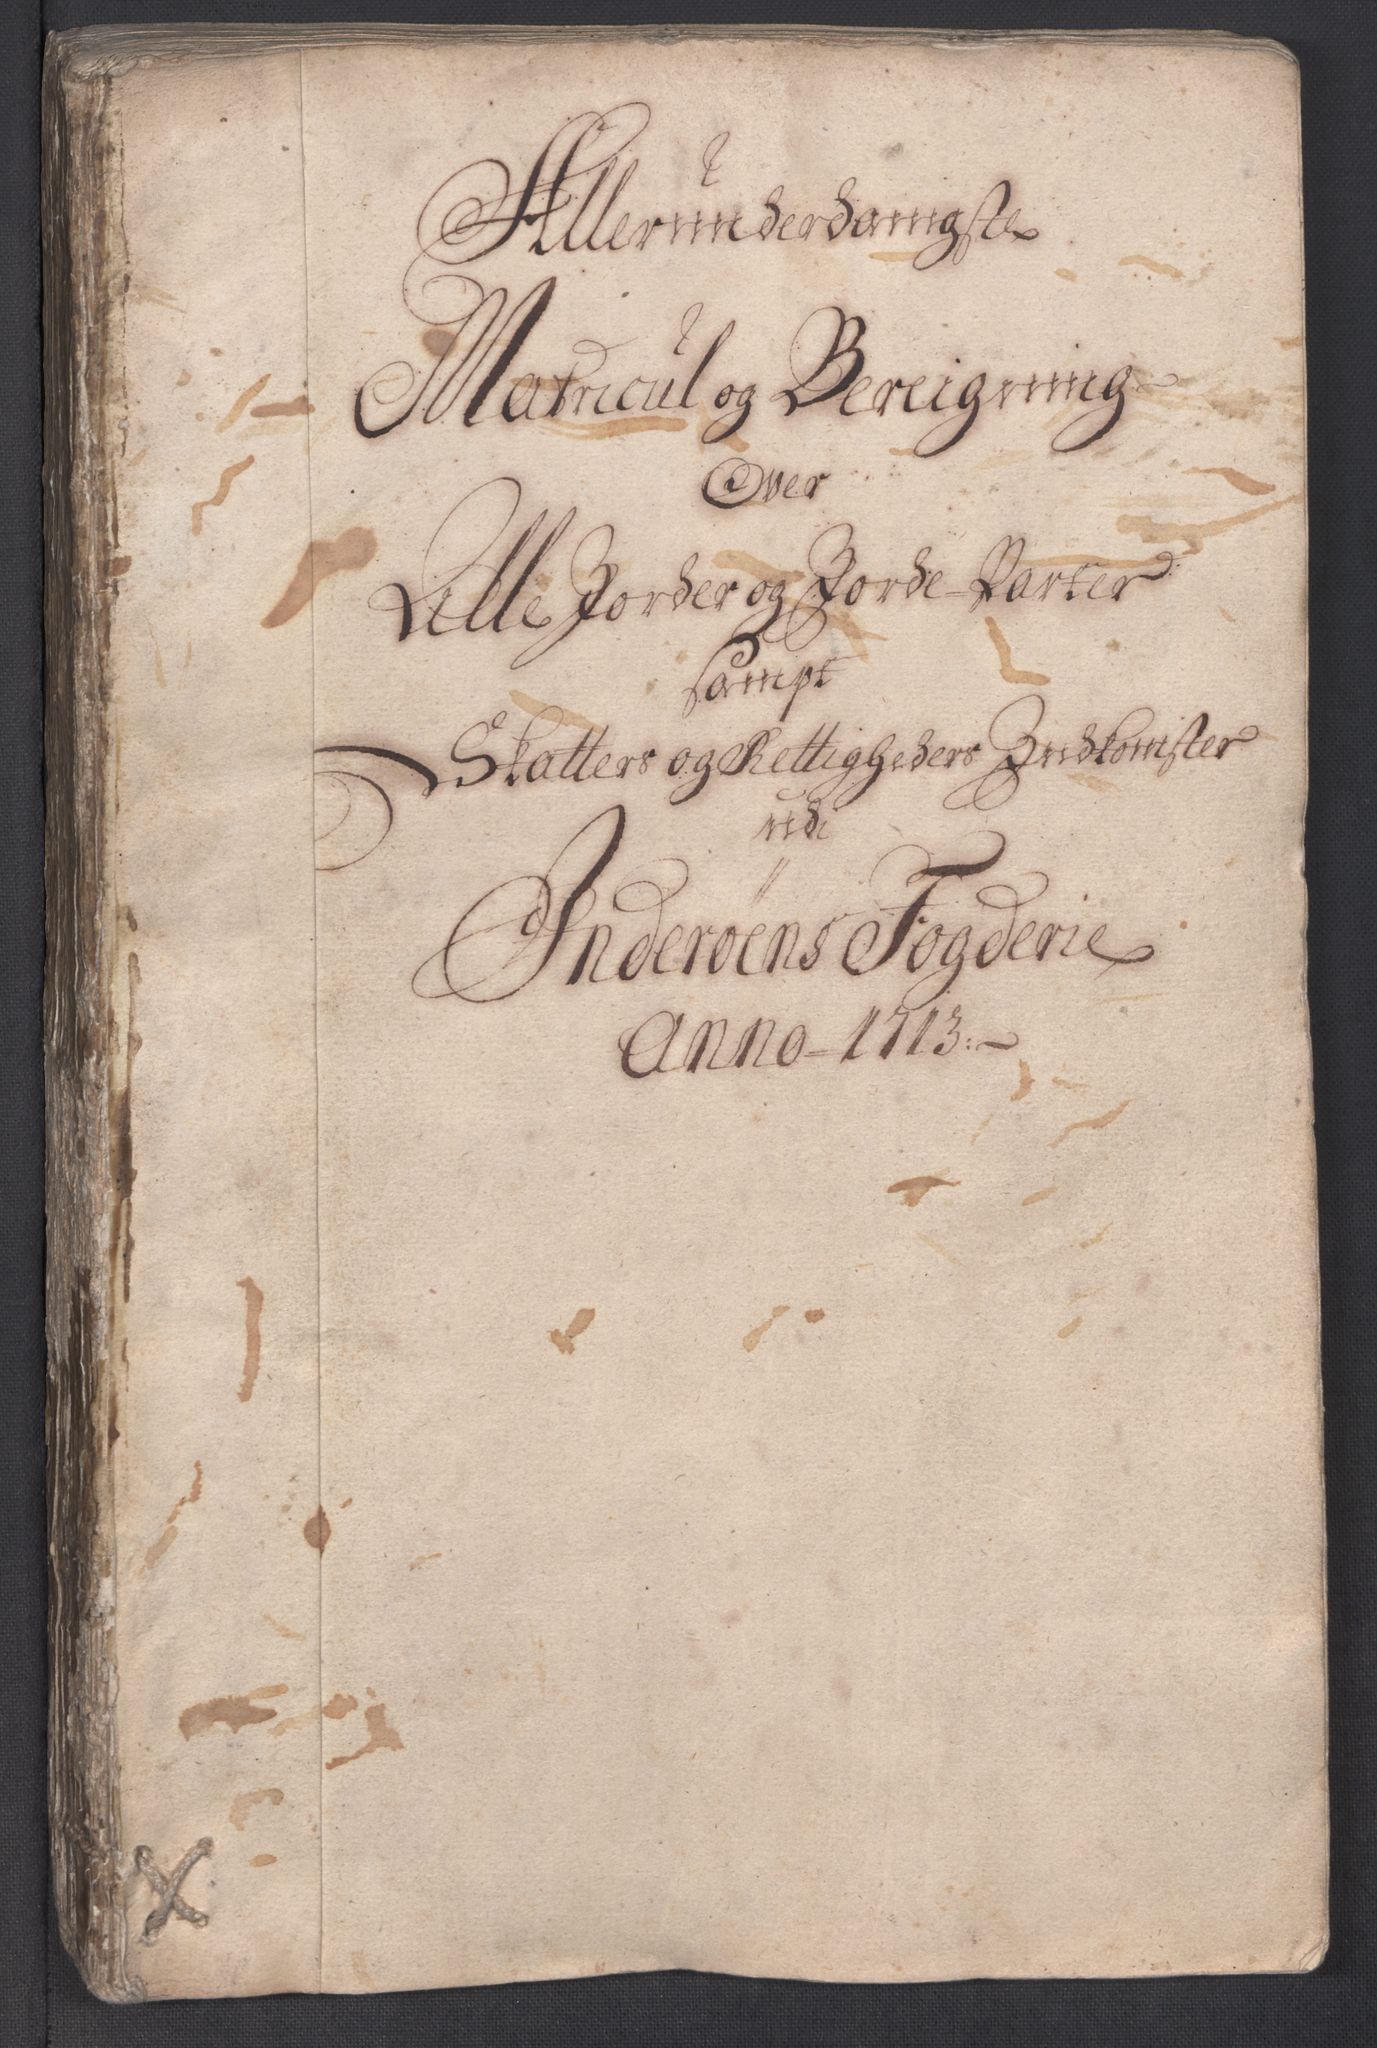 Allerunderdanigste
Matricul og Bereigning
Over
Alle Jorder og Jorde-Parter
sampt
Skatters og Rettigheders Indkomster
udi
Inderöens Fogderie
Anno-1713: